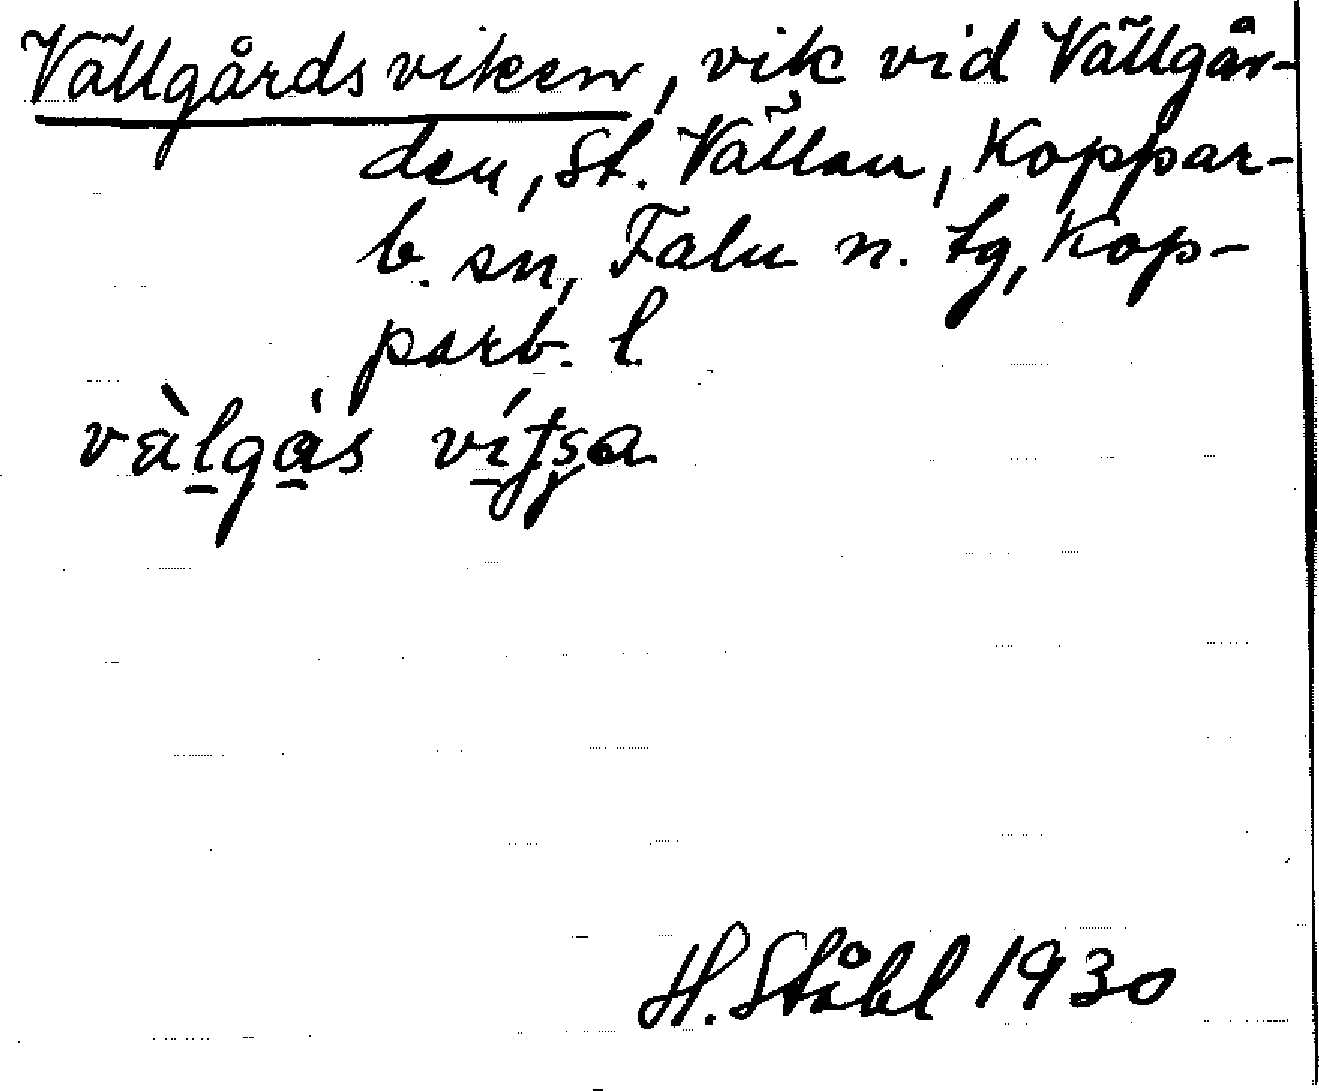 Vällgårdsviken, vik vid Vällgår-
den, St. Vällan, Koppar-
b. sn, Falu n. tg, Kop-
parb. l.
H. Ståhl 1930